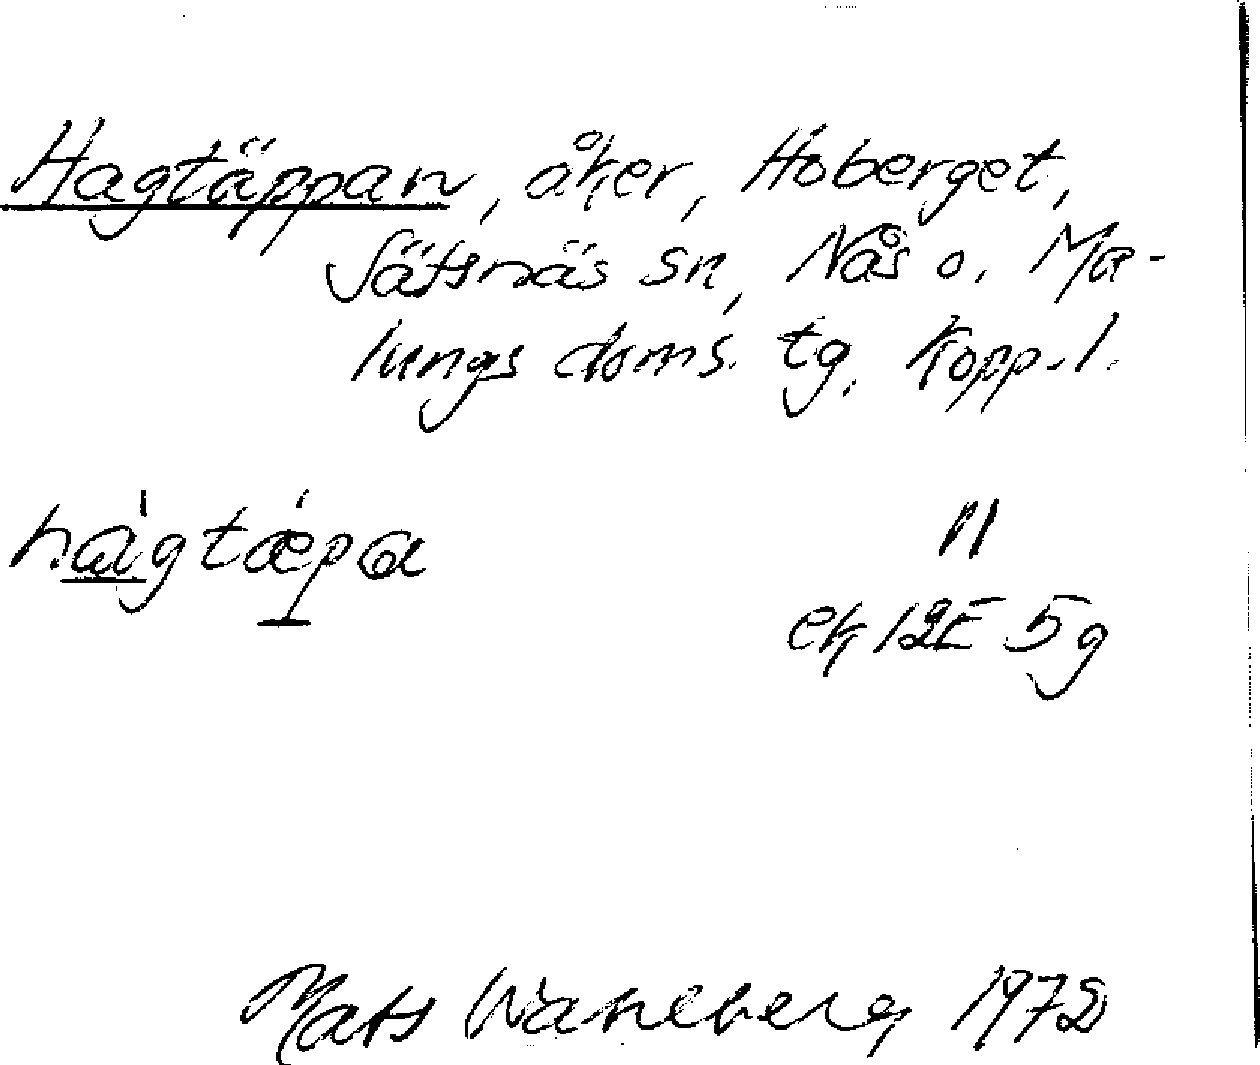 Hagtäppan, åker, Höberget,
Säfsnäs sn, Nås o. Ma-
lungs doms. tg. Kopp. l.
hàgtǽpa
ek 12E 5g
Mats 1972